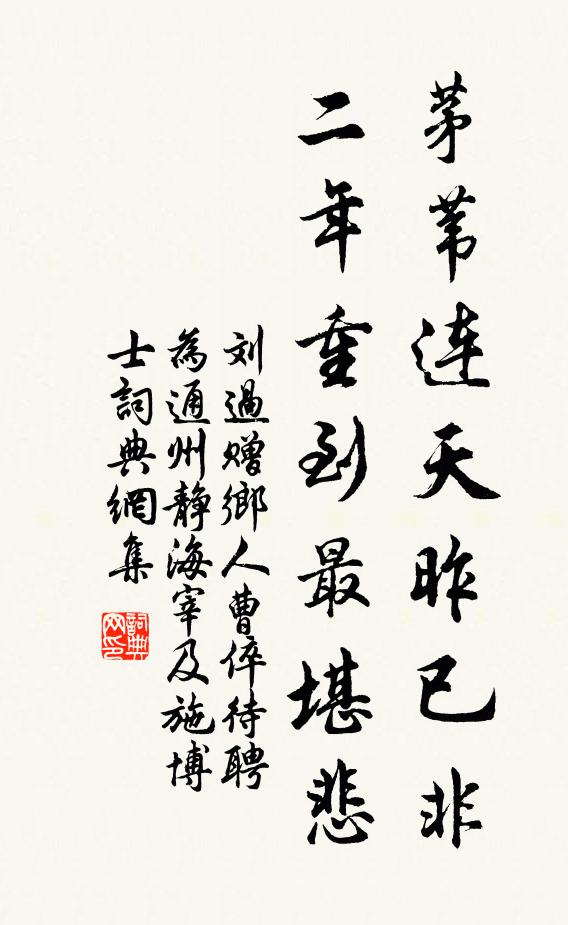 茅苇連天昨已非
二年重到最堪悲
刘過赠鄉人曹倅待聘
為通州静海宰及施博
士詞典網集
詞典
网印